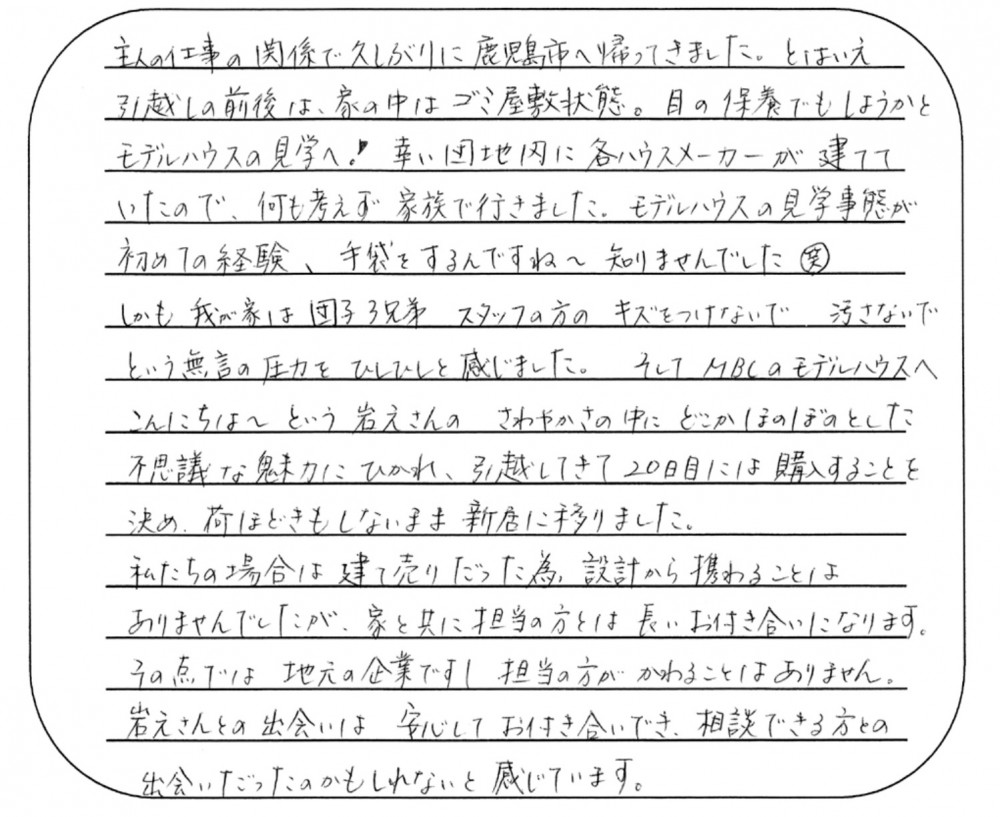 主人の仕事の関係で久しぶりに鹿児島市へ帰ってきました。とはいえ
引越しの前後は、家の中はゴミ屋敷状態。目の保養でもしようかと
モデルハウスの見学へ! 幸い団地内に各ハウスメーカーが建てて
いたので、何も考えず家族で行きました。モデルハウスの見学事態が
初めての経験、手袋をするんですね〜 知りませんでした㊗
しかも我が家は団子3兄弟 スタッフの方の キズをつけないで 汚さないで
という無言の圧力をひしひしと感じました。 そしてMBCのモデルハウスへ
こんにちは〜という岩元さんの さわやかさの中にどこかほのぼのとした
不思議な魅力にひかれ、引越してきて20日目には購入することを
決め、荷ほどきもしないまま新居に移りました。
私たちの場合は建て売りだった為、設計から携わることは
ありませんでしたが、家と共に担当の方とは長いお付き合いになります。
その点では 地元の企業ですし 担当の方がかわることはありません。
岩元さんとの出会いは 安心してお付き合いでき、相談できる方との
出会いだったのかもしれないと感じています。